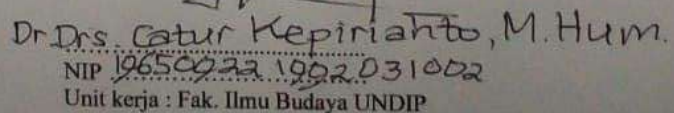 Dr Drs. Catur Kepirianto, M. Hum.
NIP 19650922 1992 031002
Unit kerja : Fak. Ilmu Budaya UNDIP